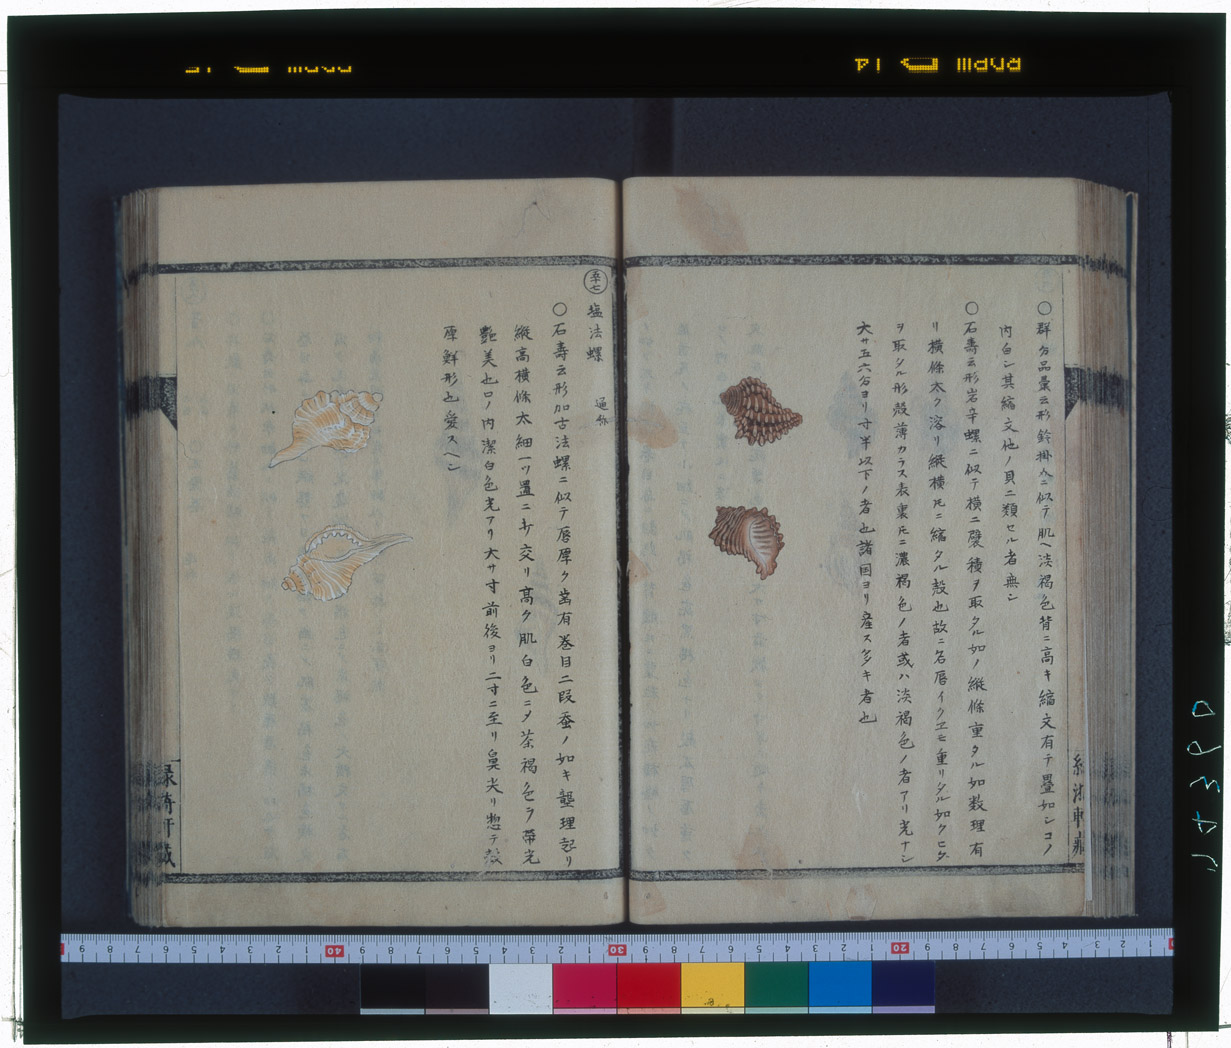 ○群分品彙云形鈴掛介ニ似テ肌ヘ淡褐色背ニ高キ縮文有テ畳如シコノ
内白シ其縮文他ノ貝ニ類セル者無シ
○石壽云形岩辛螺ニ似テ横ニ襞積ヲ取タル如ノ縦條重タル如数理有
リ横條太ク溶リ縦横圧ニ縮タル殻也故ニ名唇イクヱモ重リタル如クヒダ
ヲ取タル形殻薄カラス表裏圧ニ濃褐色ノ者或ハ淡褐色ノ者アリ光ナシ
大サ五六分ヨリ寸半以下ノ者也諸国ヨリ産ス多キ者也
五十七 塩法螺 通称
○石壽云形加古法螺ニ似テ唇厚ク歯有巻目二段蚕ノ如キ龍理起リ
縦高横條太細一ツ置ニ交リ高ク肌白色ニメ茶褐色ヲ帯光
艶美也口ノ内潔白色光アリ大サ寸前後ヨリ二寸ニ至リ鼻尖リ惣テ殻
厚鮮形也愛スヘシ